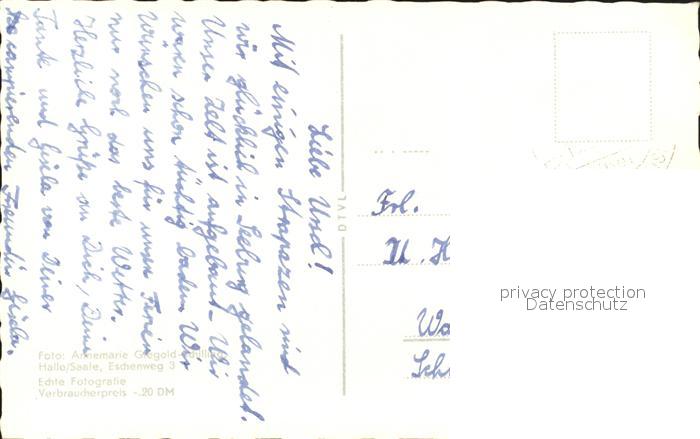 Liebe Ursel!
Mit einigen Strapazen sind
wir glücklich in Seeburg gelandet.
Unser Zelt ist aufgebaut. Wir
waren schon tüchtig baden. Wir
wünschen uns für unsere Ferien
nur noch das beste Wetter.
Herzliche Grüße an Dich, Deine
Tante und Gisela von Deiner
Freundin Gisela.
Foto: Annemarie Giegold-Schilling
Halle/Saale, Eschenweg 3
Echte Fotografie
Verbraucherpreis -.20 DM
DTVL
Frl.
U. H
Wa
Sch
privacy protection
Datenschutz